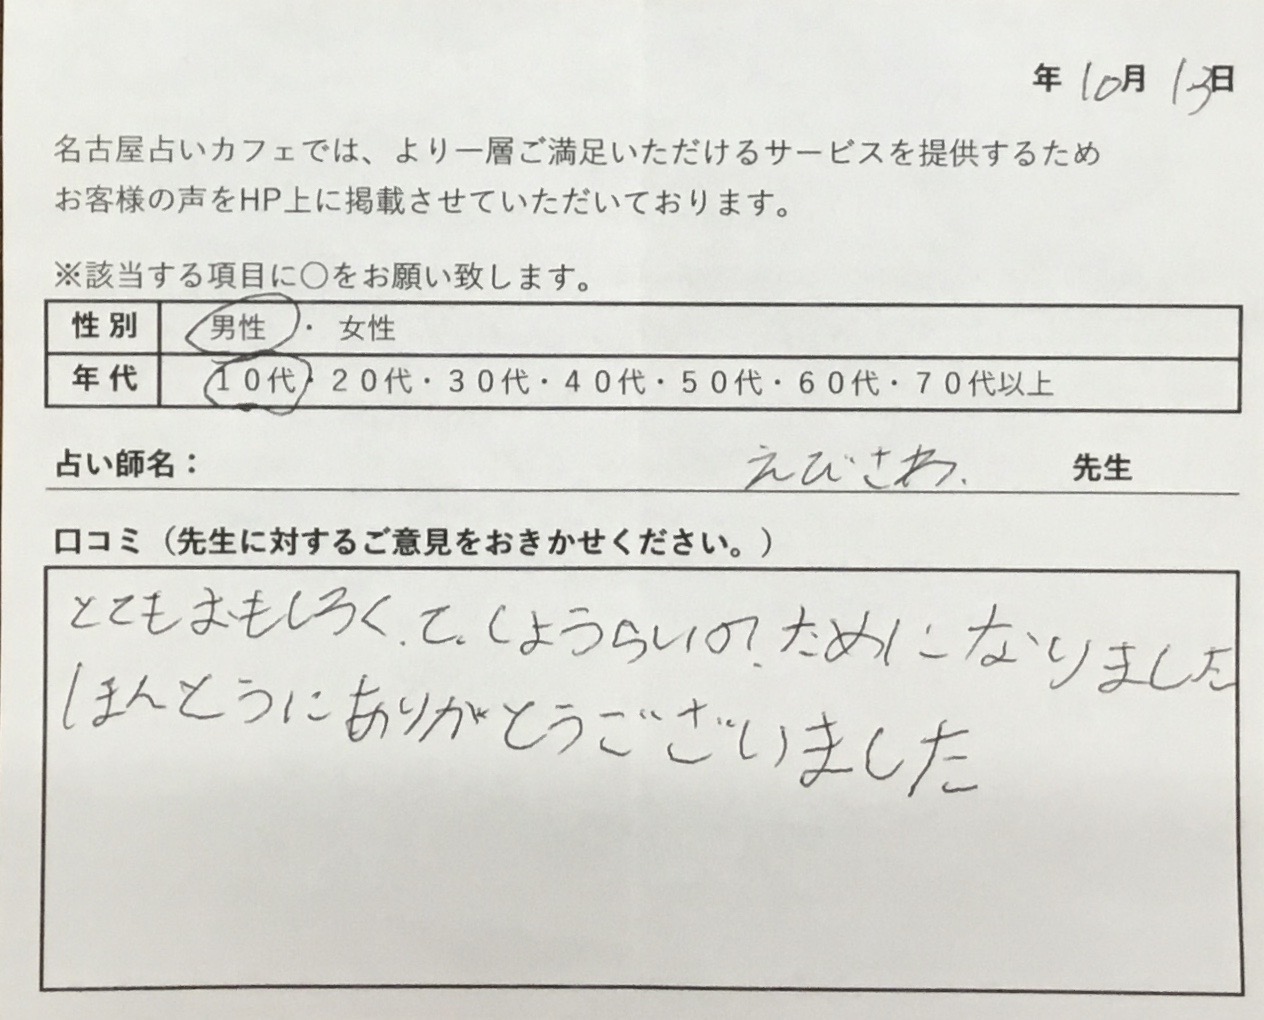 年10月13日
名古屋占いカフェでは、より一層ご満足いただけるサービスを提供するため
お客様の声をHP上に掲載させていただいております。
※該当する項目に〇をお願い致します。
性別 男性・女性
年代 １０代・２０代・３０代・４０代・５０代・６０代・７０代以上
占い師名： えびさわ 先生
口コミ（先生に対するご意見をおきかせください。）
とてもおもしろくて。しょうらいのためになりました
ほんとうにありがとうございました